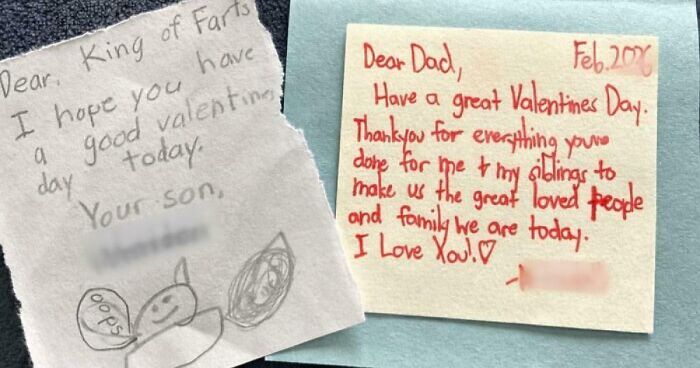 Dear, King of Farts
I hope you have
a good valentines
day today.
Your son,
oops
Dear Dad,
Feb.2026
Have a great Valentines Day.
Thankyou for everything youve
done for me + my siblings to
make us the great loved people
and family we are today.
I Love You!♡